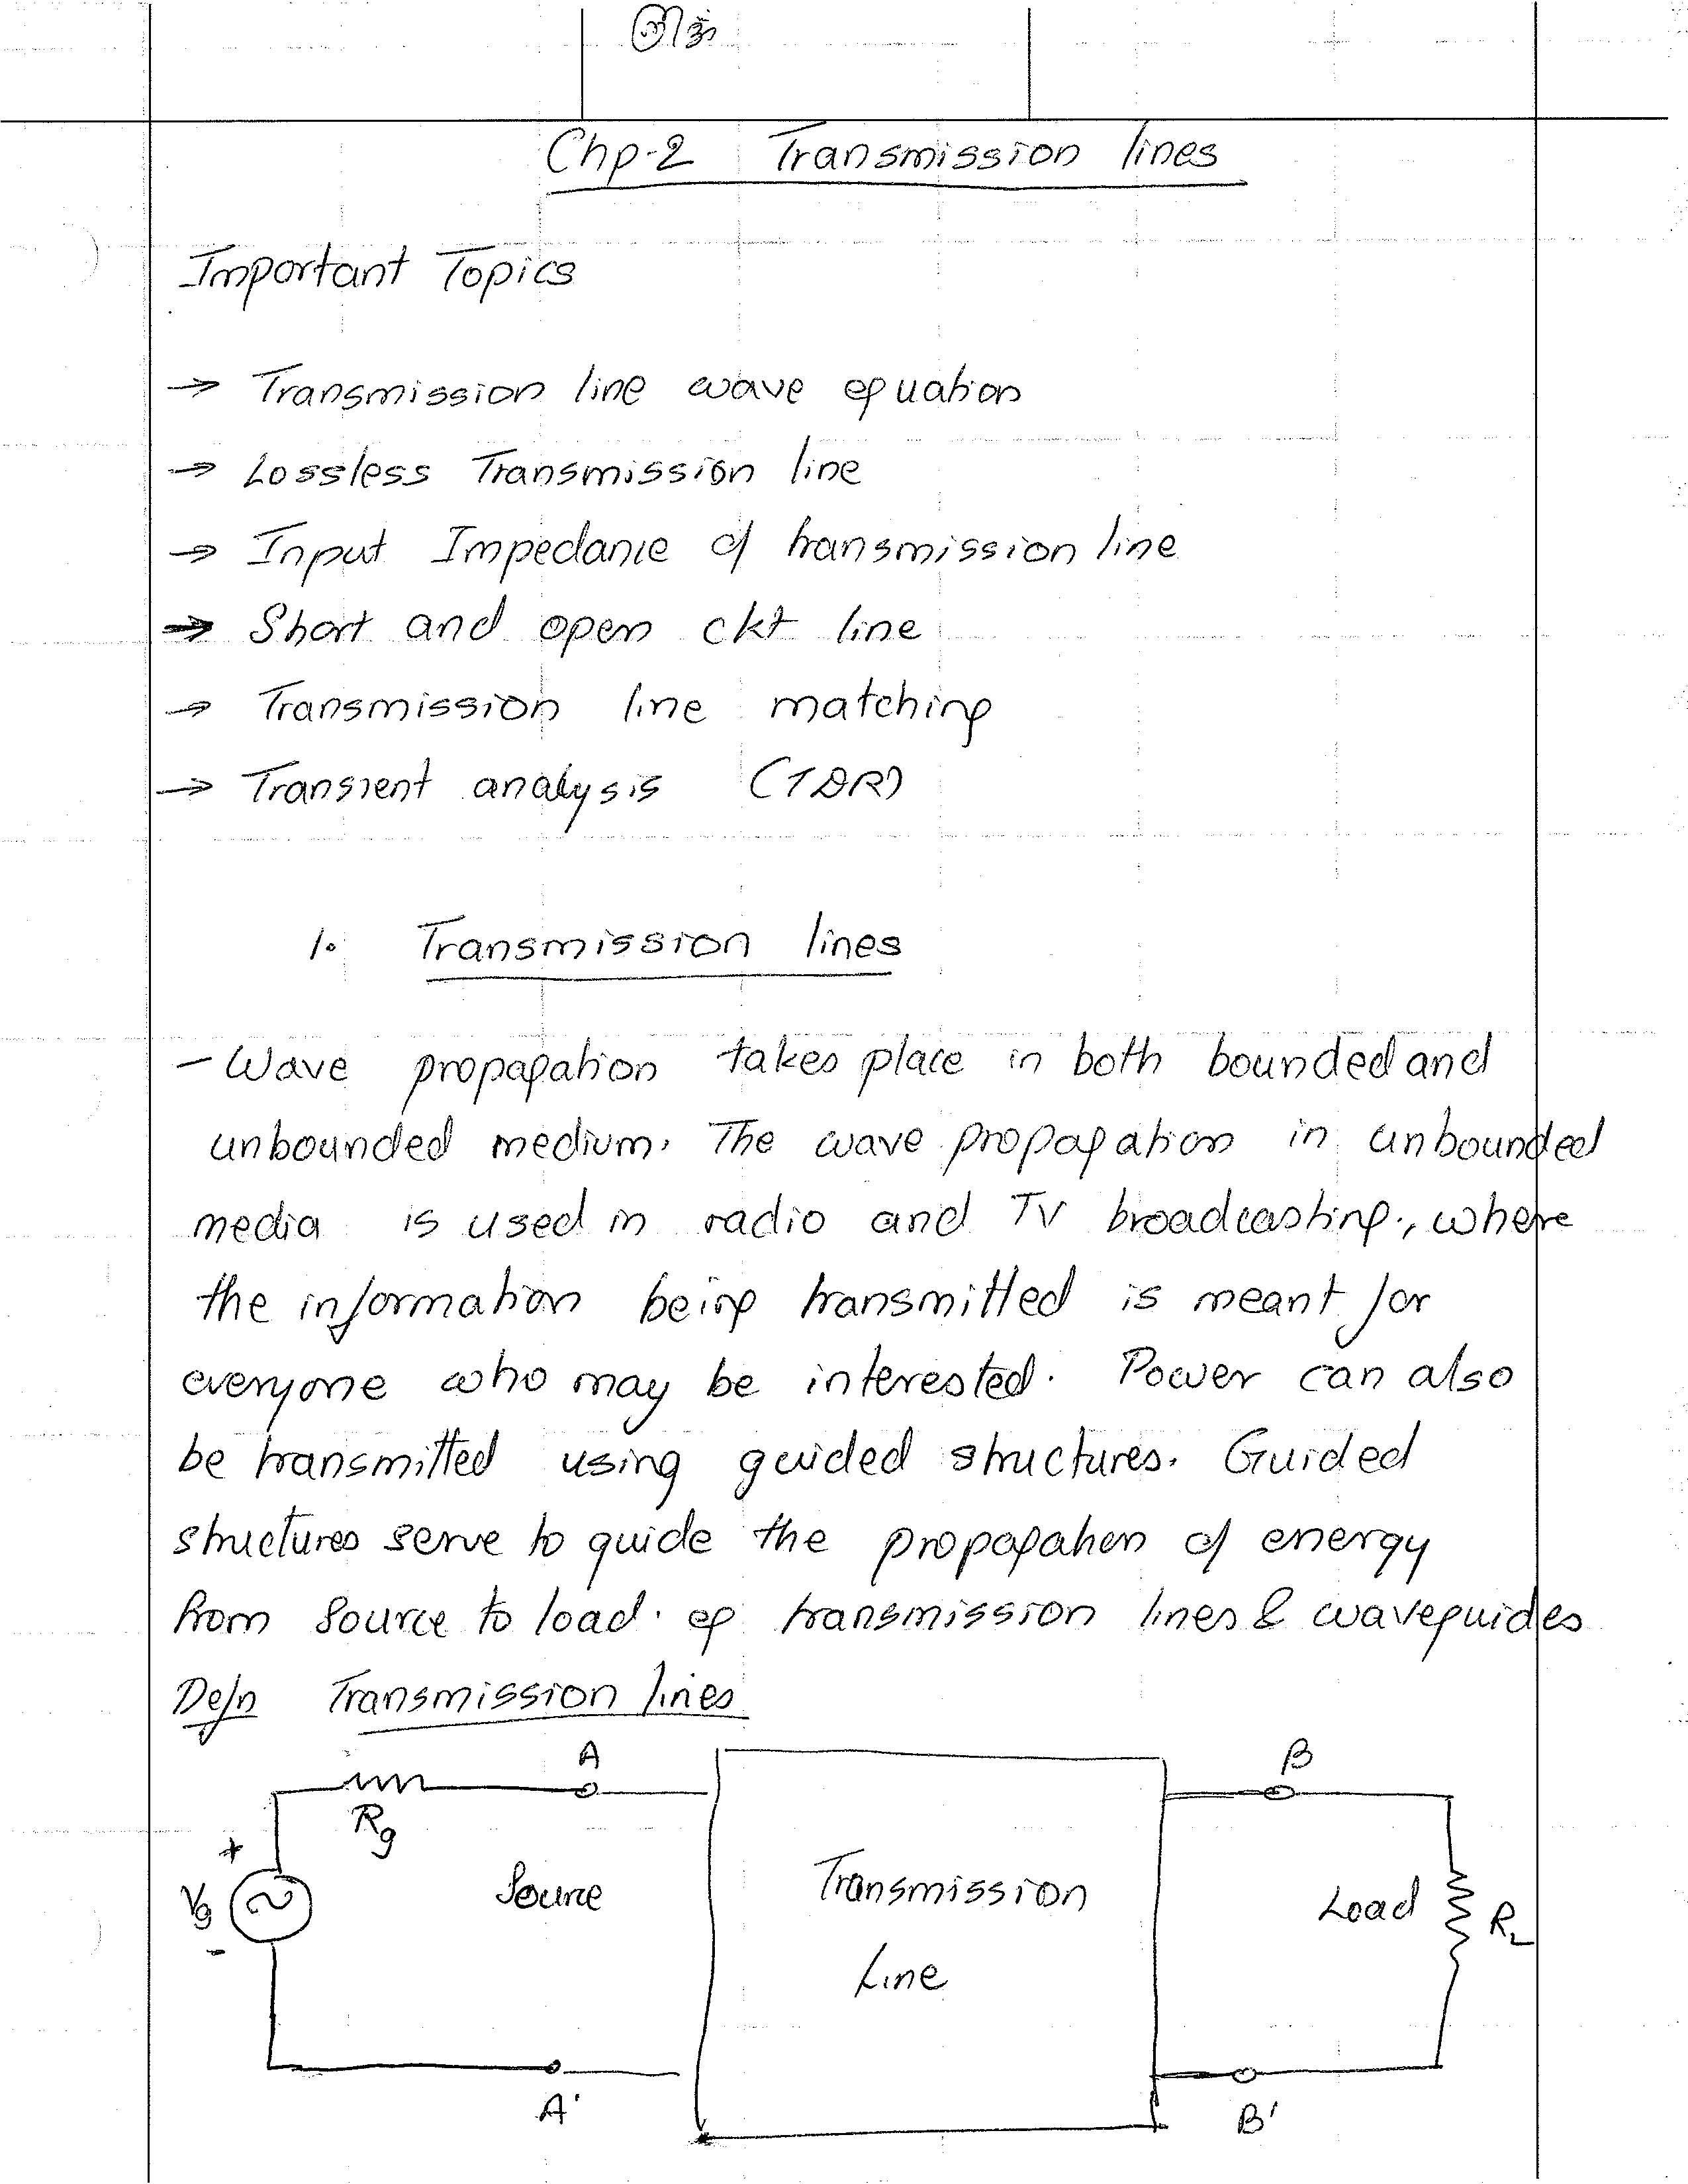 Chp-2 Transmission lines
Important Topics
→ Transmission line wave equation
→ Lossless Transmission line
→ Input Impedance of transmission line
→ Short and open ckt line
→ Transmission line matching
→ Transient analysis (TDR)
1. Transmission lines
- Wave propagation takes place in both bounded and
unbounded medium. The wave propagation in unbounded
media is used in radio and TV broadcasting, where
the information being transmitted is meant for
everyone who may be interested. Power can also
be transmitted using guided structures. Guided
structures serve to guide the propagation of energy
from source to load. eg transmission lines & waveguides
Defn Transmission lines
A B
Rg
+
Vg Source Transmission Load RL
- Line
A' B'